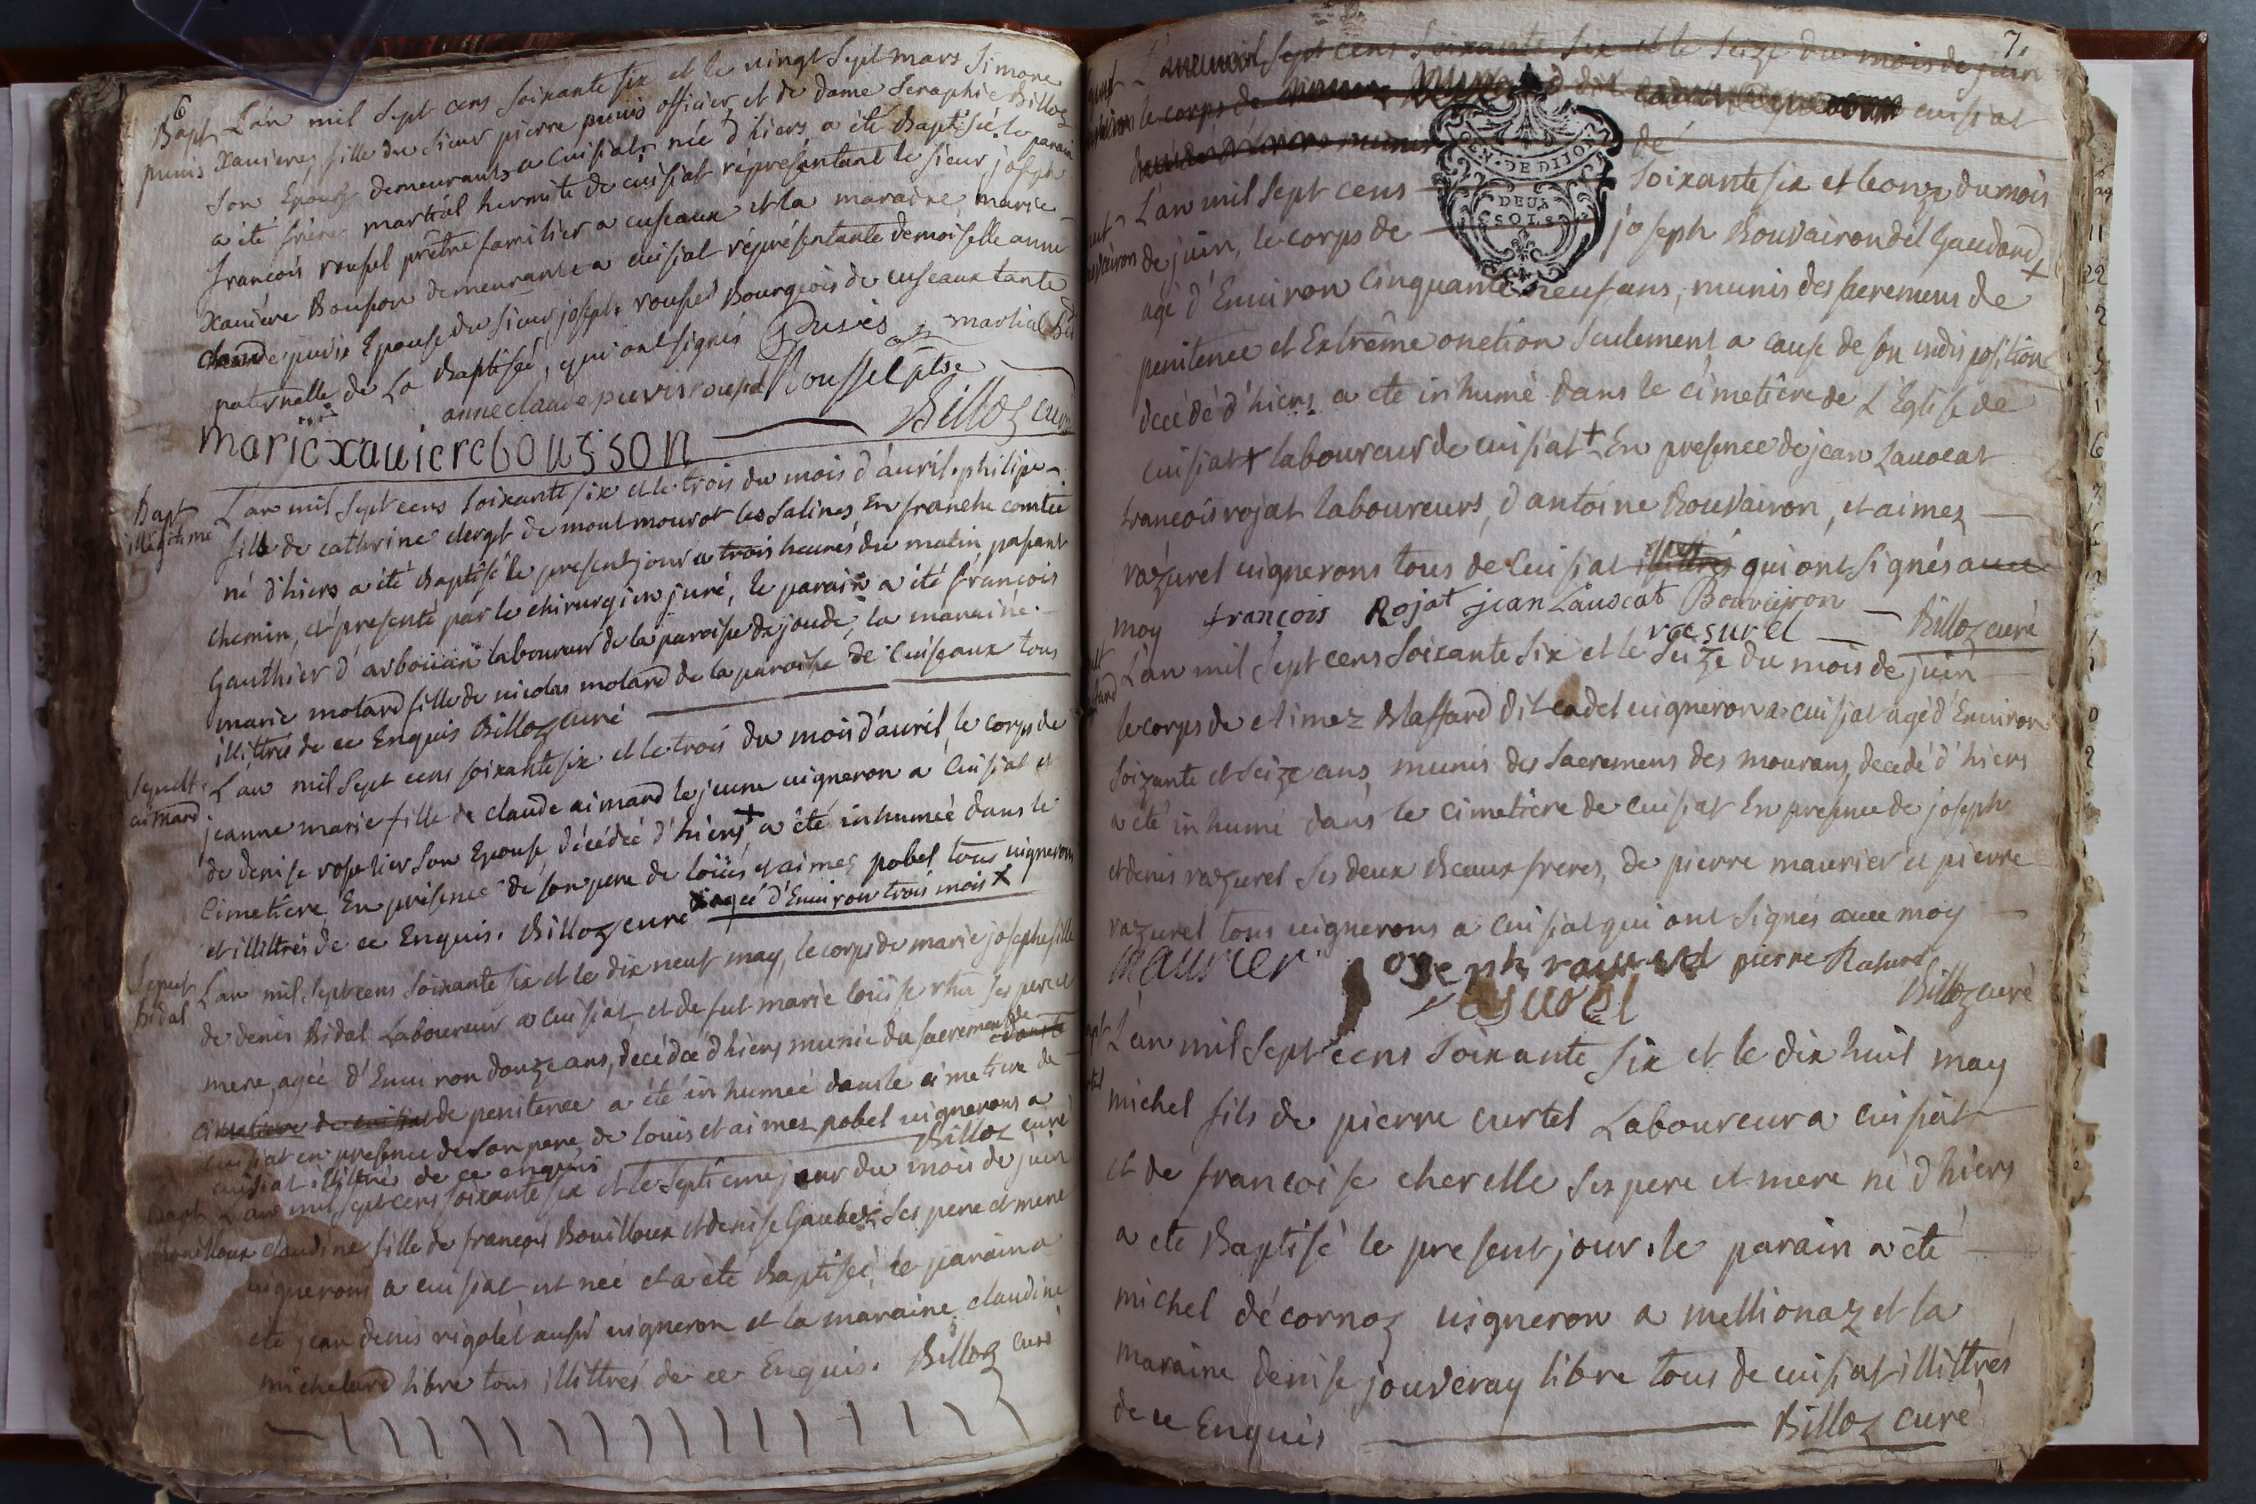 6
Bapt L'an mil sept cens soixante six et le vingt sept mars Simone
puvis xaviere, fille du sieur pierre puvis officier et de dame Seraphie Billoz
son Epouse demeurants a Cuisiat, née d'hiers a été Baptisée, le parain
a été frère martial hermite de cuisiat représentant le sieur joseph
francois roussel prêtre familier a cuseaux et la maraine marie
xavière Bousson demeurante a cuisiat réprésentante demoiselle anne
claude puvis Epouse du sieur joseph roussel Bourgeois de cuseaux tante
paternelle de La Baptisée, qui ont signés Puvis martial
anne claude puvis roussel Roussel ptre
Billoz curé
marie xaviere bousson
Bapt L'an mil sept cens soixante six et le trois du mois d'avril, philipe
illegitime fils de cathrine clergt de mont mourot les salines En franche comtée
né d'hiers a été Baptisé le present jour a trois heures du matin passant
chemin, et presenté par le chirurgien juré, le parain a été françois
Gauthier d'arboüan laboureur de la paroisse de joude, la maraine
marie molard fille de nicolas molard de la paroisse de Cuiseaux tous
illittrés de ce Enquis Billoz curé
Sepult. L'an mil sept cens soixante six et le trois du mois d'avril, le corps de
aimard jeanne marie fille de claude aimard le jeune vigneron a Cuisiat et
de denise rosselier son Epouse, décédée d'hiers + a été inhumée dans le
Cimetière En présence de son pere de loüis et aimez pobel tous vignerons
et illittrés de ce Enquis. Billoz curé + agée d'Environ trois mois +
Sepult L'an mil sept cens soixante six et le dix neuf may, le corps de marie josephe fille
Bidal de denis Bidal Laboureur a cuisiat, et de fut marie loüise rha ses pere et
mere, agée d'Environ douze ans, decédée d'hiers, munie du sacrement de dans le
cimetiere de cuisiat de penitence a été inhumée dans le cimetiere de
cuisiat en presence de son pere, de louis et aimez pobel vignerons a
cuisiat illittrés de ce enquis Billoz curé
Bapt L'an mil sept cens soixante six et le septieme jour du mois de juin
Bouilloux claudine fille de françois Bouilloux et denise Gaubez ses pere et mere
vignerons a cuisiat est née et a été Baptisée, le parain a
été jean denis rigolet aussi vigneron et la maraine claudine
michelard libre tous illittrés de ce Enquis. Billoz curé
7
L'an mil sept cens soixante six et le seize du mois de juin
le corps de cuisiat
de
L'an mil sept cens soixante six et le onze du mois
EN. DE DIJON
DEUX SOLS
de juin, le corps de joseph Bouvairon del Gaudard +
agé d'Environ cinquante neuf ans, munis des sacremens de
penitence et Extrême onction seulement a cause de son indisposition
decédé d'hiers a été inhumé dans le cimetière de L'Eglise de
cuisiat + laboureur de cuisiat + En presence de jean Lavocat
francois rojat laboureurs, d'antoine Bouvairon, et aimez
razurel vignerons tous de Cuisiat qui ont signés avec
moy francois Rojat jean Lauocat Bouvieron
rasurel Billoz curé
L'an mil sept cens soixante six et le seize du mois de juin
le corps de etimez Blaffard dit cadet vigneron a cuisiat agé d'Environ
soixante et seize ans, munis des sacremens des mourans, decedé d'hiers
a été inhumé dans le cimetiere de cuisiat En presence de joseph
et denis razurel ses deux Beaux freres, de pierre maurier et pierre
razurel tous vignerons a cuisiat qui ont signés avec moy
maurier joseph pierre Rasurel
Billoz curé
L'an mil sept cens soixante six et le dix huit may
michel fils de pierre curtel Laboureur a cuisiat
et de francoise cherelle ses pere et mere né d'hiers
a été Baptisé le present jour, le parain a été
michel décornoz vigneron a mellionaz et la
maraine denise jouveray libre tous de cuisiat illittrés
de ce Enquis Billoz curé